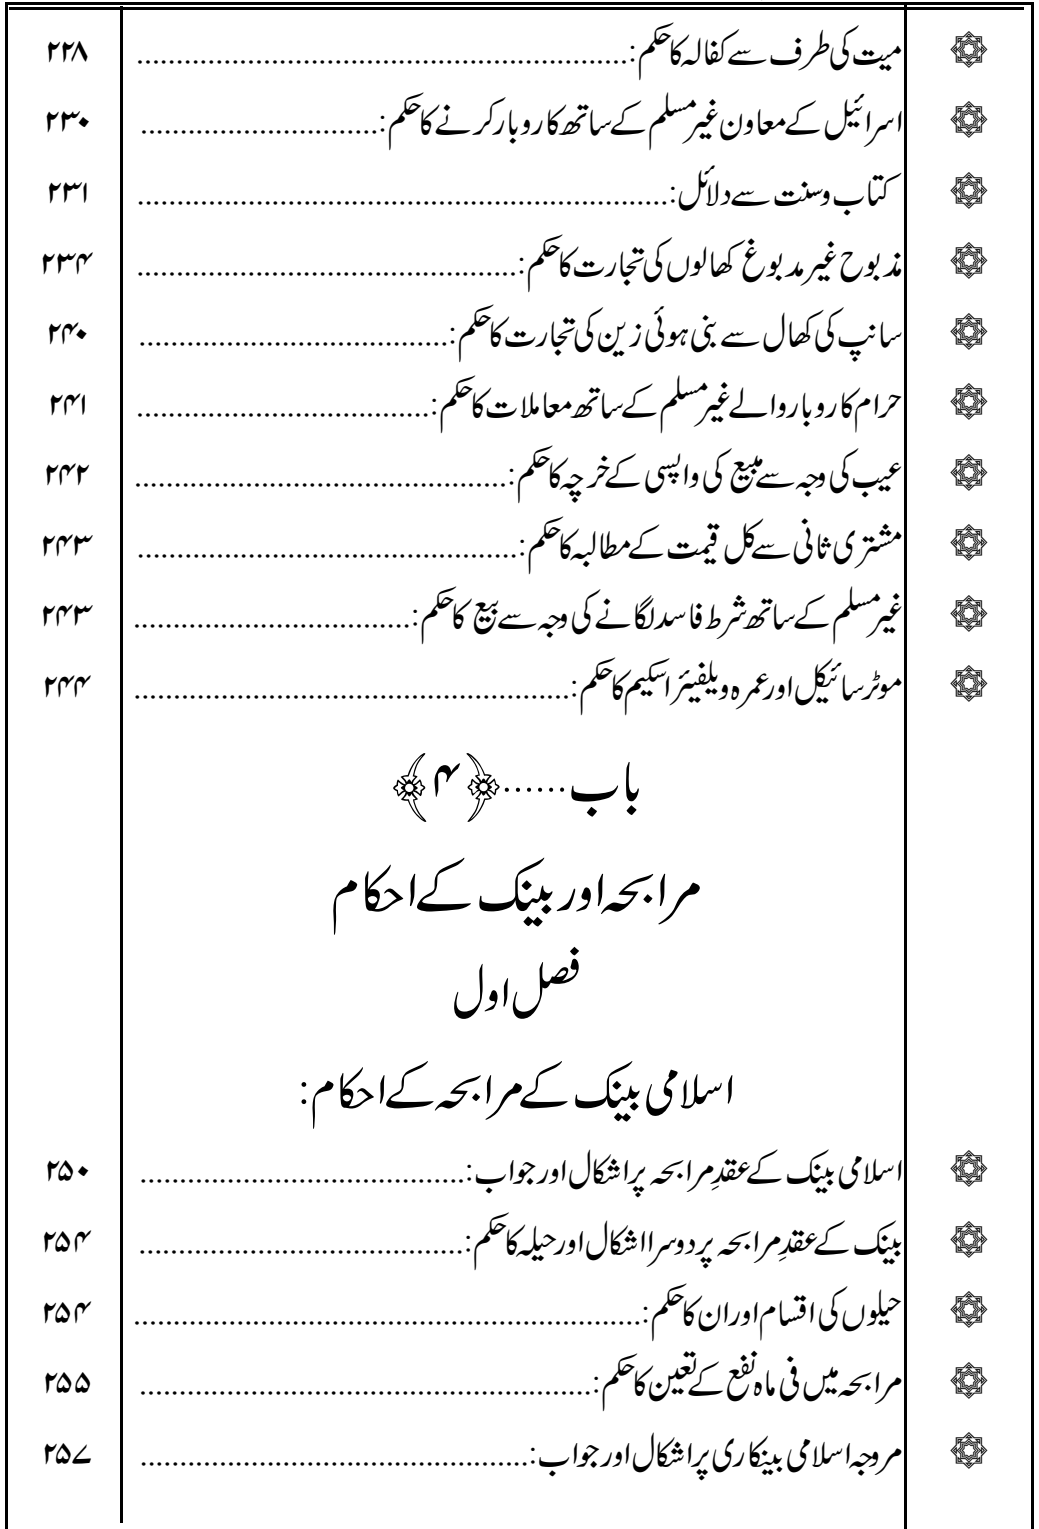 میت کی طرف سے کفالہ کا حکم:.............................................................. ۲۲۸
اسرائیل کے معاون غیر مسلم کے ساتھ کاروبار کرنے کا حکم:.............................. ۲۳۰
کتاب وسنت سے دلائل:................................................................... ۲۳۱
مذبوح غیر مدبوغ کھالوں کی تجارت کا حکم:................................................ ۲۳۴
سانپ کی کھال سے بنی ہوئی زین کی تجارت کا حکم:....................................... ۲۴۰
حرام کاروبار والے غیر مسلم کے ساتھ معاملات کا حکم:..................................... ۲۴۱
عیب کی وجہ سے مبیع کی واپسی کے خرچہ کا حکم:............................................... ۲۴۲
مشتری ثانی سے کل قیمت کے مطالبہ کا حکم:................................................ ۲۴۳
غیر مسلم کے ساتھ شرط فاسد لگانے کی وجہ سے بیع کا حکم:................................... ۲۴۳
موٹر سائیکل اور عمرہ ویلفیئر اسکیم کا حکم:....................................................... ۲۴۴
باب......﴿۴﴾
مرابحہ اور بینک کے احکام
فصل اول
اسلامی بینک کے مرابحہ کے احکام:
اسلامی بینک کے عقدِ مرابحہ پر اشکال اور جواب:......................................... ۲۵۰
بینک کے عقدِ مرابحہ پر دوسرا اشکال اور حیلہ کا حکم:......................................... ۲۵۴
حیلوں کی اقسام اور ان کا حکم:................................................................ ۲۵۴
مرابحہ میں فی ماہ نفع کے تعین کا حکم:......................................................... ۲۵۵
مروجہ اسلامی بینکاری پر اشکال اور جواب:................................................. ۲۵۷